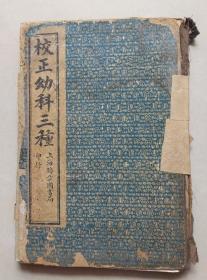 校正幼科三種
上海錦章圖書局
印行